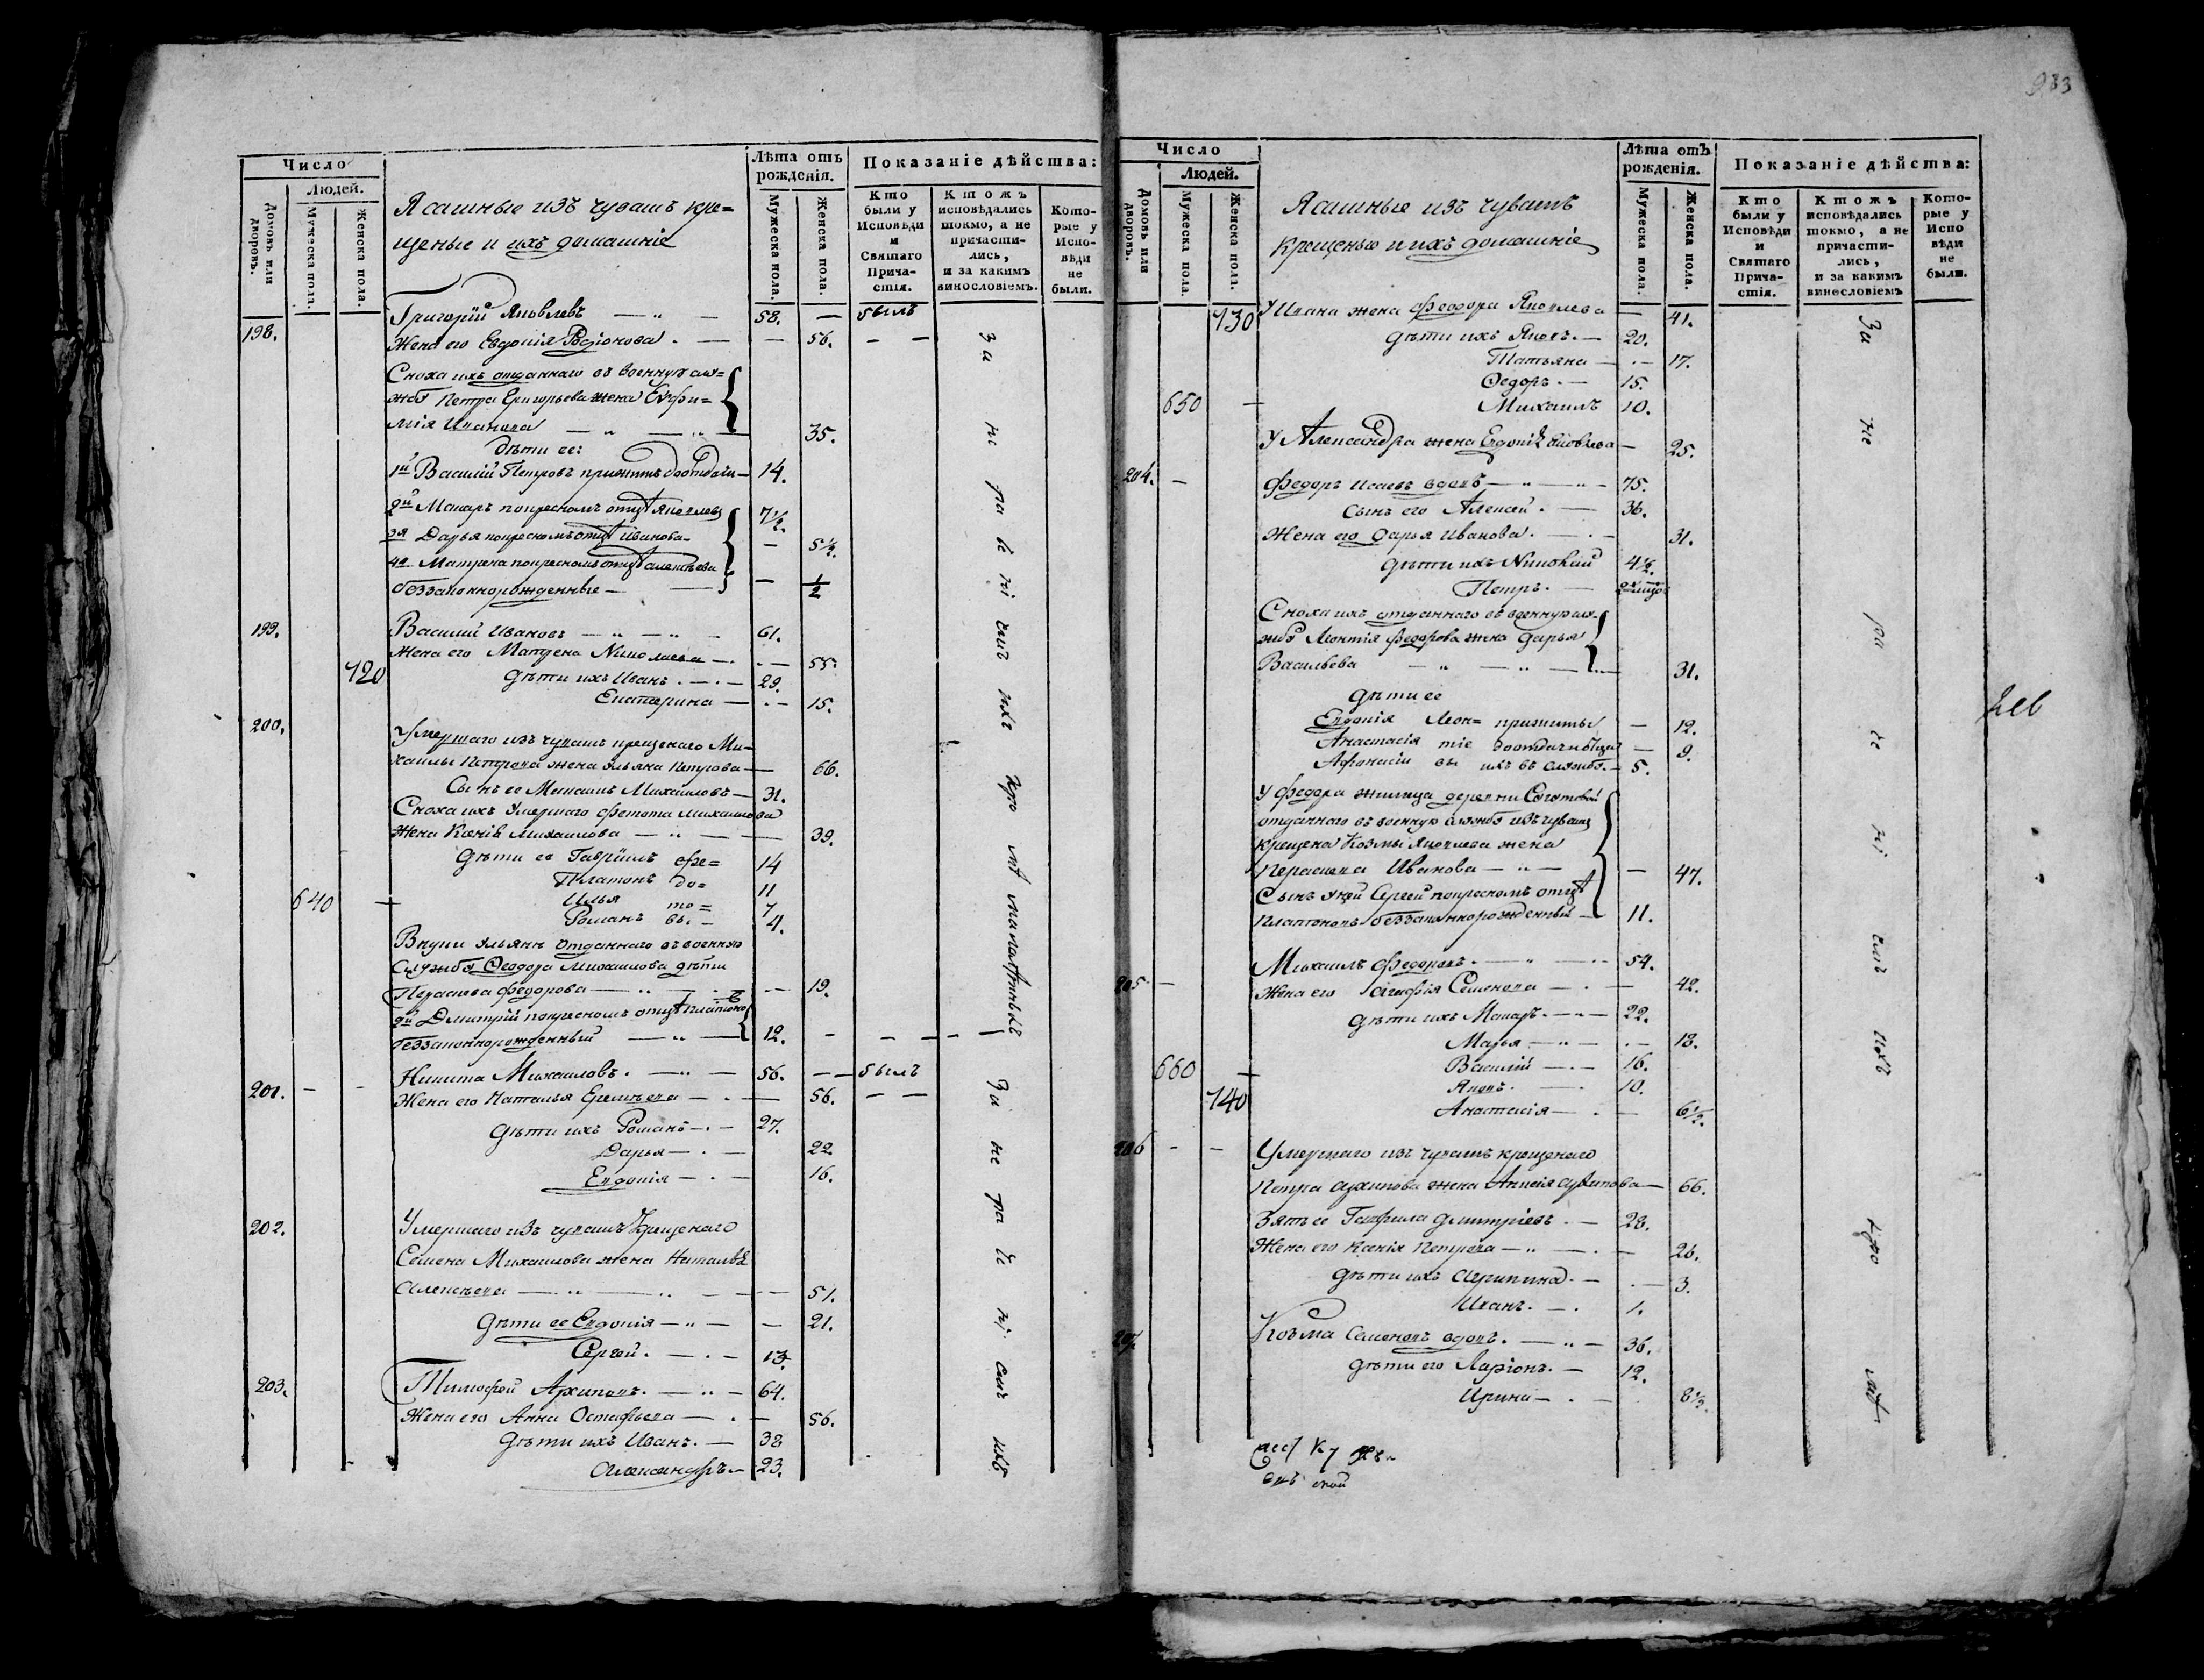 Число
Людей.
Домовъ или дворовъ.
Мужеска пола.
Женска пола.
Ясашные изъ чувашъ кре=
щеные и ихъ домашніе
Лѣта отъ рожденія.
Мужеска пола.
Женска пола.
Показаніе дѣйства:
Кто были у Исповѣди и Святаго Прича- стія.
Ктожъ исповѣдались токмо, а не причасти- лись, и за какимъ винословіемъ.
Кото- рые у Испо- вѣди не были.
198. Григорій Яковлевъ 58. былъ
Жена его Евдокія Родіонова. 56.
Сноха ихъ отданнаго въ военную слу=
жбу Петра Григорьева жена Евфи=
мія Иванова 35.
дѣти ее:
1й Василій Петровъ прижитъ до отдачи 14.
2й Макаръ по крестномъ отцѣ Яковлевъ 7½.
3я Дарья по крестномъ отцѣ Иванова 5½.
4я Матрена по крестномъ отцѣ Алексѣева
беззаконнорожденные ½
199. Василій Ивановъ 61.
Жена его Матрена Николаева 55.
720 дѣти ихъ Иванъ 29.
Екатерина 15.
200. Умершаго изъ чувашъ крещенаго Ми-
хаилы Петрова жена Ульяна Петрова 66.
Сынъ ее Михаилъ Михайловъ 31.
Сноха ихъ умершаго Федота Михаилова
жена Ксенія Михаилова 39.
дѣти ее Гавріилъ Фе= 14
Платонъ до= 11
640 Илья то= 7
Романъ вы. 4.
Внуки Ульяны отданнаго въ военную
службу Ѳеодора Михаилова дѣти
Параскева Федорова 19.
2й Дмитрій по крестномъ отцѣ Платоновъ
беззаконнорожденный 12.
201. Никита Михаиловъ. 56. былъ
Жена его Наталья Еремѣева 56.
дѣти ихъ Романъ 27.
Дарья 22.
Евдокія 16.
202. Умершаго изъ чувашъ крещенаго
Семена Михаилова жена Наталья
Алексѣева 51.
дѣти ее Евдокія 21.
Сергей. 13.
203. Тимофей Архиповъ. 64.
Жена его Анна Остафьева 56.
дѣти ихъ Иванъ. 38
Александръ 23.
За не ра де ні емъ ихъ
За не ра де ні емъ ихъ
983
Число
Людей.
Домовъ или дворовъ.
Мужеска пола.
Женска пола.
Ясашные изъ чувашъ
крещеные и ихъ домашніе
Лѣта отъ рожденія.
Мужеска пола.
Женска пола.
Показаніе дѣйства:
Кто были у Исповѣди и Святаго Прича- стія.
Ктожъ исповѣдались токмо, а не причасти- лись, и за какимъ винословіемъ
Кото- рые у Испо вѣди не были.
730 У Ивана жена Феодора Яковлева 41.
дѣти ихъ Яковъ. 20.
Татьяна 17.
Ѳедоръ. 15.
650 Михаилъ 10.
У Александра жена Евдокія Яковлева 25.
204. Федоръ Исаевъ вдовъ 75.
Сынъ его Алексей. 36.
Жена его Дарья Иванова. 31.
дѣти ихъ Николай 4½.
Петръ.
Сноха ихъ отданнаго въ военную слу-
жбу Леонтія Федорова жена Дарья
Васильева 31.
дѣти ее
Евдокія Леон= прижиты 12.
Анастасія тіе 9.
Афанасій вы ихъ въ службу. 5.
У Федора жилица деревни
отданнаго въ военную службу изъ чувашъ
крещена Козмы Яковлева жена
Параскева Иванова 47.
Сынъ у ней Сергей по крестномъ отцѣ
Платоновъ беззаконнорожденный 11.
205 Михаилъ Федоровъ. 54.
Жена его Агафія Семенова 42.
дѣти ихъ Макаръ. 22.
Марья 18.
660 Василій 16.
Яковъ. 10.
740 Анастасія 6½.
206 Умершаго изъ чувашъ крещенаго
Петра Архипова жена Анисія Архипова 66.
Зять ее Гаврила Дмитріевъ 28.
Жена его Ксенія Петрова 26.
дѣти ихъ Агрипина. 3.
Иванъ. 1.
207. Козьма Семеновъ вдовъ. 36.
дѣти его Ларіонъ. 12.
Ирина 8½.
За не ра де ні емъ